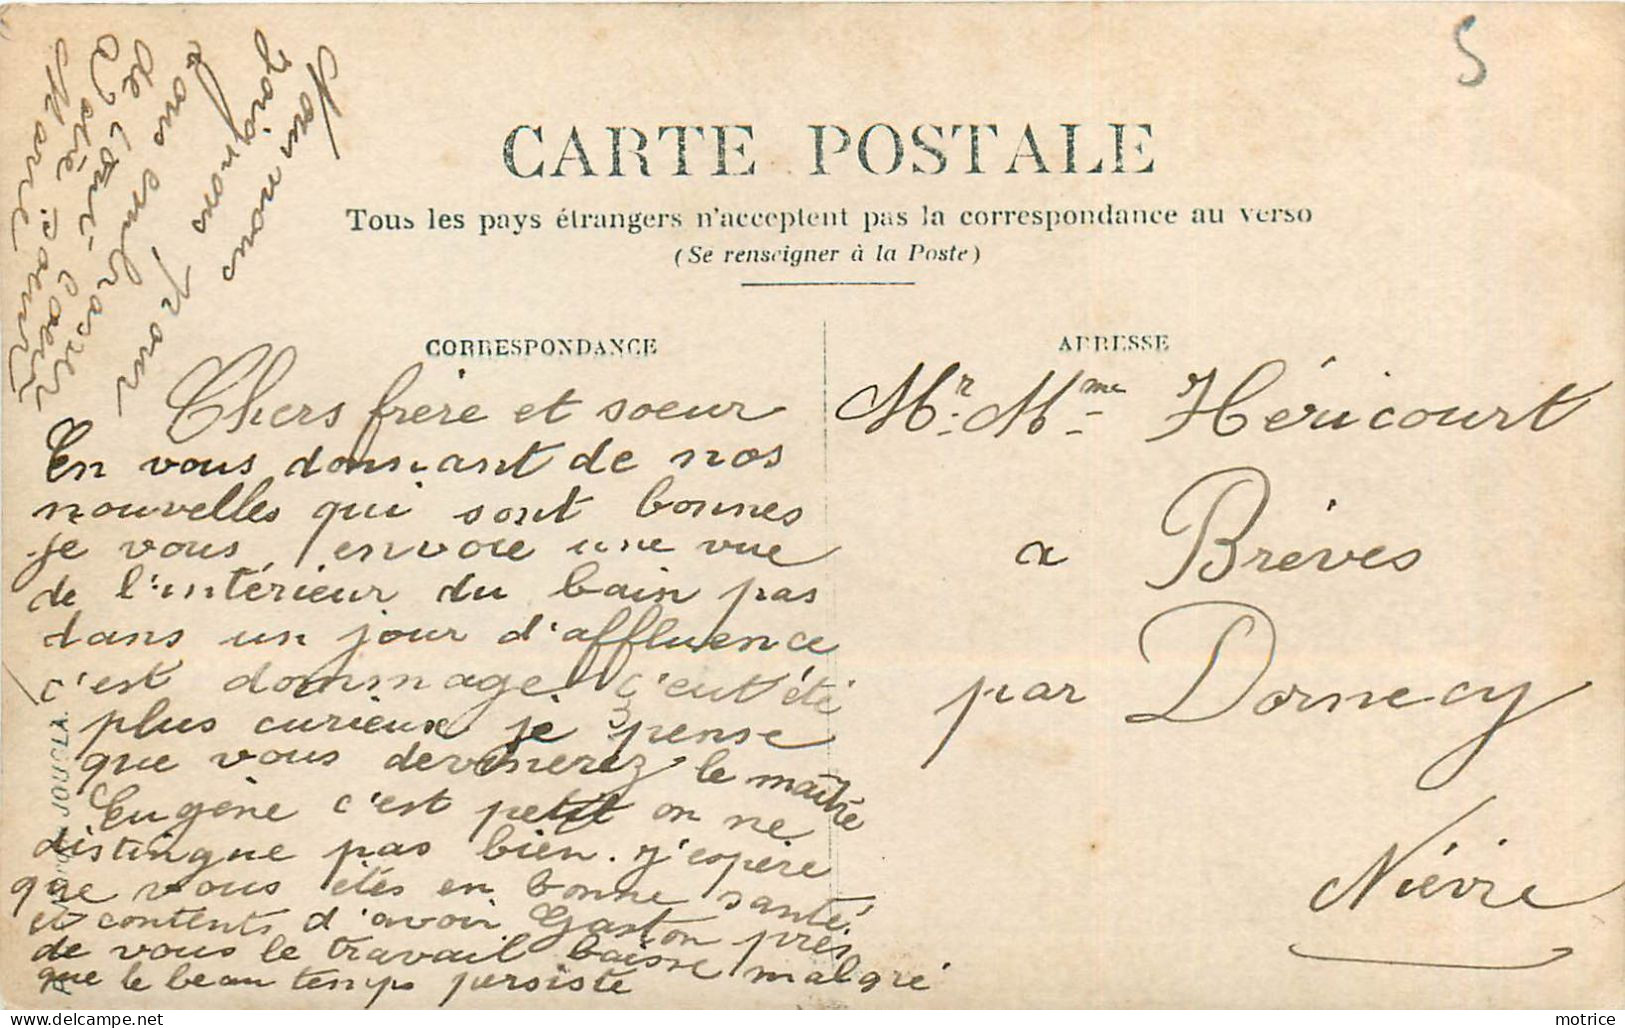 5
CARTE POSTALE
Tous les pays étrangers n'acceptent pas la correspondance au verso
(Se renseigner à la Poste)
CORRESPONDANCE
Chers frère et soeur
En vous donnant de nos
nouvelles qui sont bonnes
je vous envoie une vue
de l'intérieur du bain pas
dans un jour d'affluence
c'est dommage c'eut été
plus curieux je pense
que vous devinerez le maître
Eugène c'est petit on ne
distingue pas bien. J'espère
que vous étés en bonne santé
et contents d'avoir Gaston près
de vous le travail baisse malgré
que le beau temps persiste
Nous nous
joignons
pour
vous embrasser
de tout coeur
Votre soeur
Marie
ADRESSE
Mr. Mme Héricourt
a Brèves
par Dornecy
Nièvre
JOUGLA
motrice